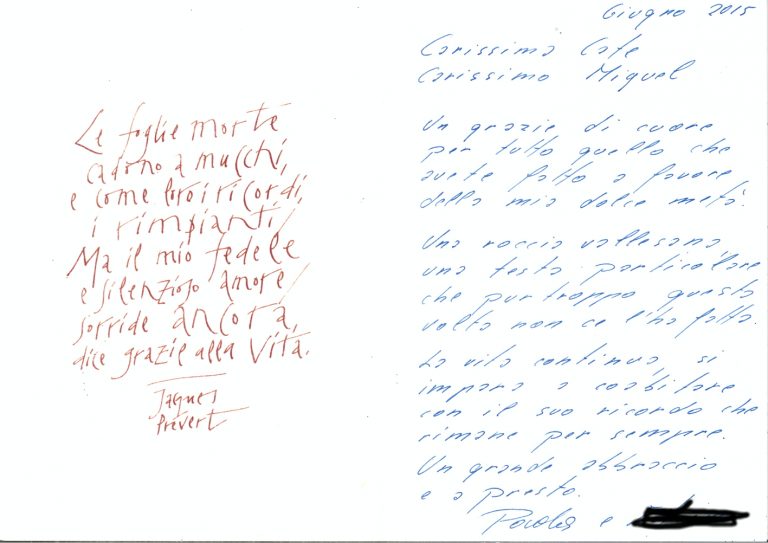 Le foglie morte
cadono a mucchi,
e come loro i ricordi,
i rimpianti/
Ma il mio fedele
e silenzioso amore/
sorride ancora,
dice grazie alla vita.
Jaques
Prévert
Giugno 2015
Carissima Cate
Carissimo Miguel
Un grazie di cuore
per tutto quello che
avete fatto a favore
della mia dolce metà.
Una roccia vallesana
una testa particolare
che purtroppo questa
volta non ce l'ha fatta.
La vita continua, si
impara a coabitare
con il suo ricordo che
rimane per sempre.
Un grande abbraccio
e a presto.
e